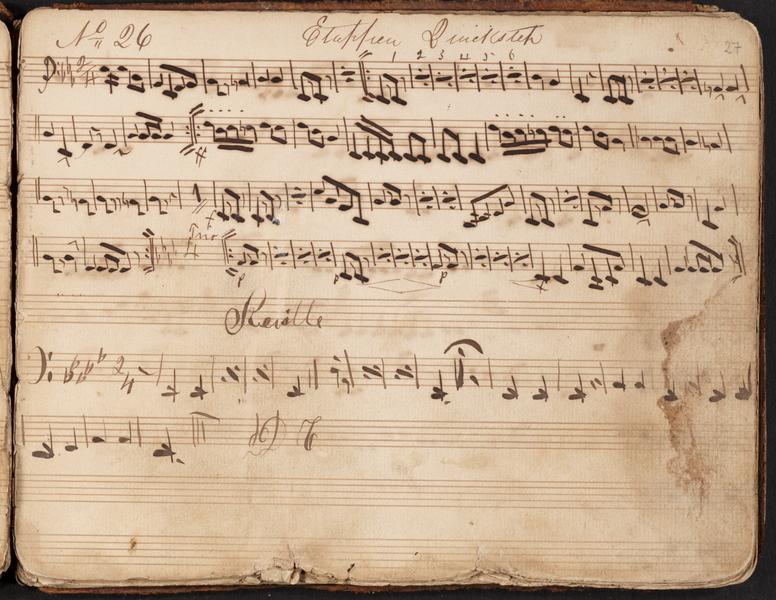 No 26 Etappen Quickstep 27
1 2 3 4 5 6
2/4
ff
1
f
Trio
p p
Reville
2/4
D C